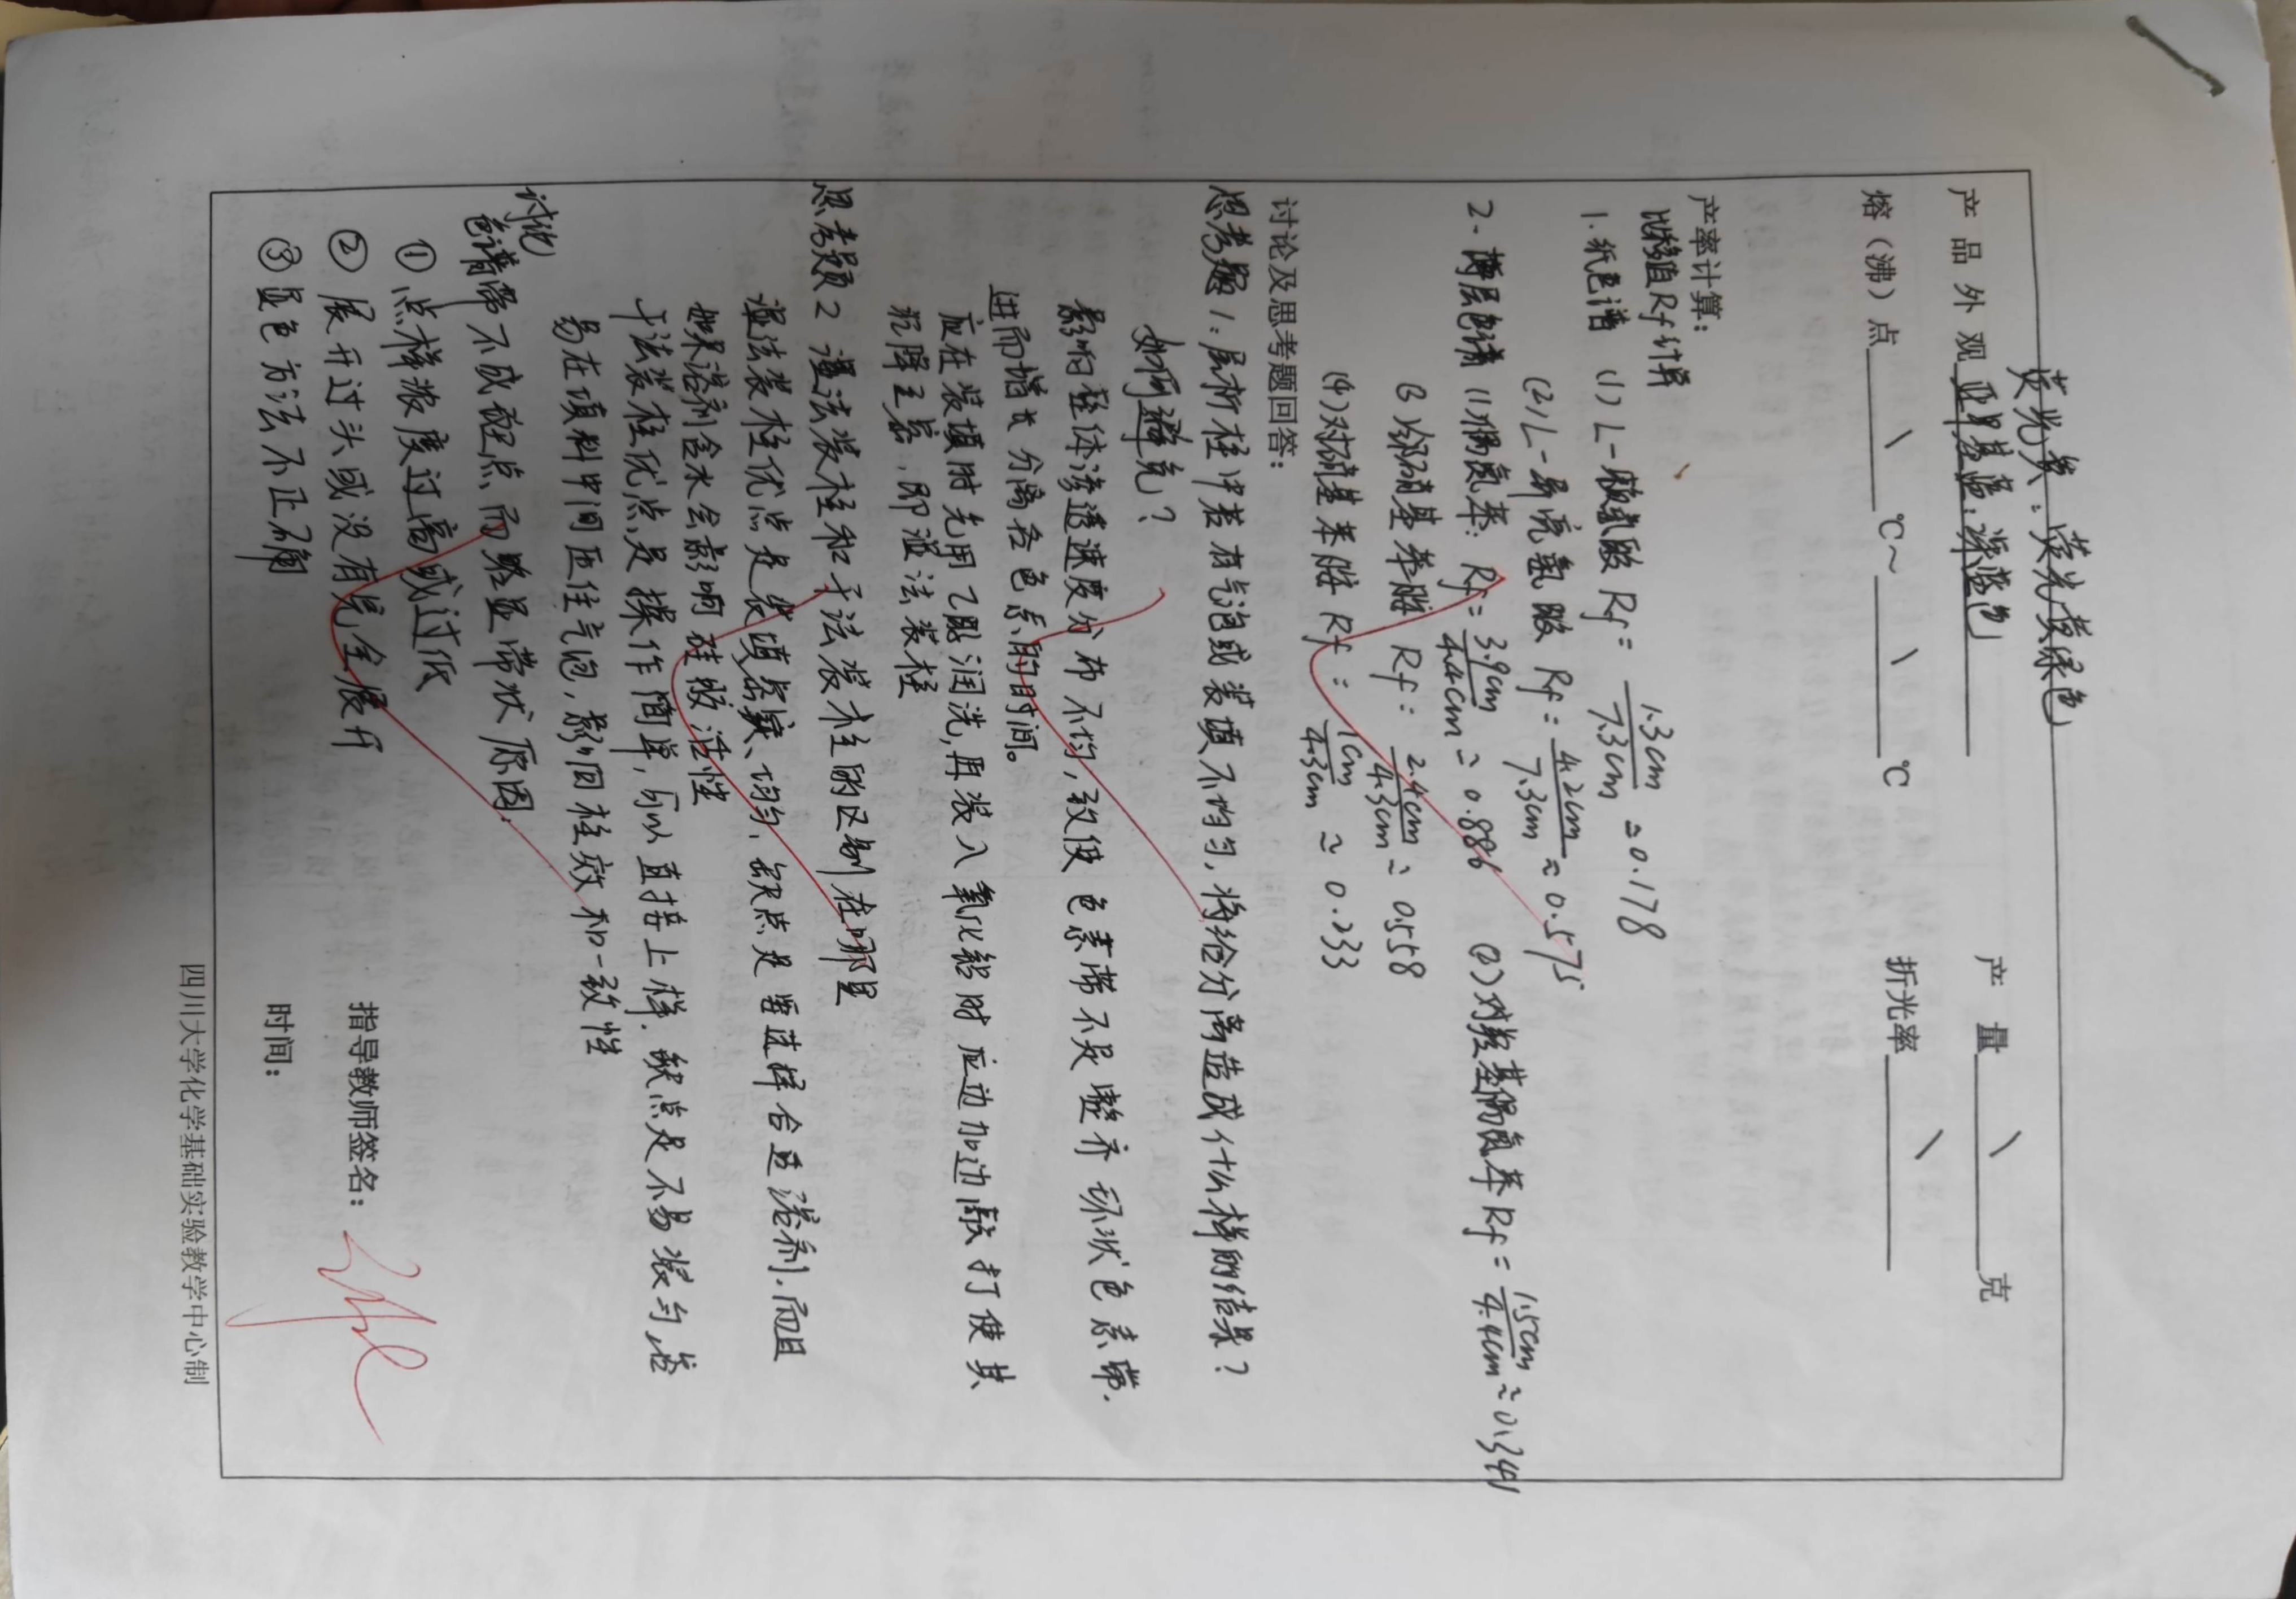 荧光黄：荧光黄绿色
产品外观 亚甲基蓝：深蓝色 产量 \ 克
熔（沸）点 \ ℃～ \ ℃ 折光率 \
产率计算：
比移值Rf计算
1. 纸色谱 (1) L-赖氨酸 Rf = 1.3cm/7.3cm ≈ 0.178
(2) L-异亮氨酸 Rf = 4.2cm/7.3cm ≈ 0.575
2. 薄层色谱 (1)偶氮苯：Rf = 3.9cm/4.4cm ≈ 0.886 (2)对羟基偶氮苯 Rf = 1.5cm/4.4cm ≈ 0.341
(3) 邻硝基苯胺 Rf = 2.4cm/4.3cm ≈ 0.558
(4) 对硝基苯胺 Rf = 1cm/4.3cm ≈ 0.233
讨论及思考题回答：
思考题1. 层析柱中若有气泡或装填不均匀，将给分离造成什么样的结果？
如何避免？
影响整体渗透速度分布不均，致使色素带不是整齐环状色素带.
进而增大分离各色素的时间。
应在装填时先用乙醇润洗，再装入氧化铝时应边加边敲打使其
沉降主易，即湿法装柱
思考题2 湿法装柱和干法装柱的区别在哪里
湿法装柱优点是装填紧实、均匀，缺点是要选择合适溶剂.而且
如果溶剂含水会影响硅胶活性
干法装柱优点是操作简单，可以直接上样. 缺点是不易装匀，容
易在填料中间压住气泡，影响柱效和一致性
讨论
色谱带不成斑点而明显带状原因.
① 点样浓度过高或过低
② 展开过头或没有完全展开
③ 显色方法不正确
指导教师签名：
时间：
四川大学化学基础实验教学中心制